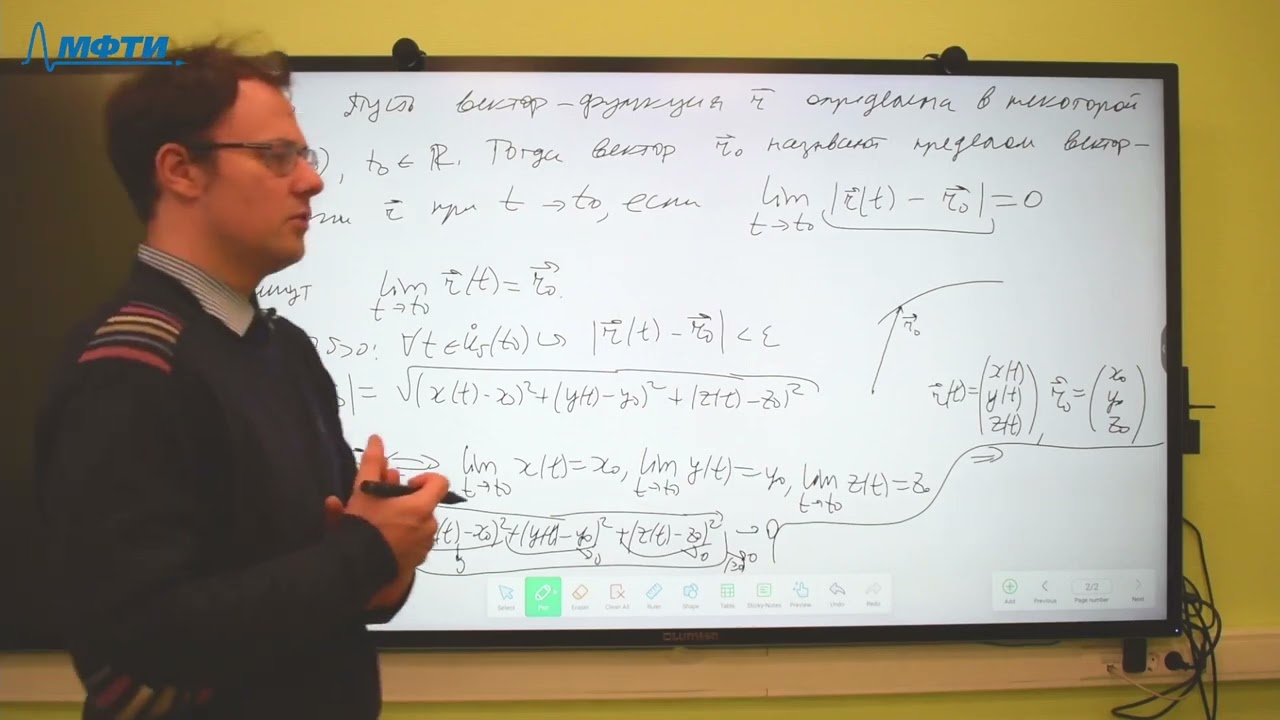 МФТИ
Пусть вектор-функция r⃗ определена в некоторой
), t₀ ∈ ℝ. Тогда вектор r⃗₀ называют пределом вектор-
r⃗ при t → t₀, если lim t→t₀ |r⃗(t) − r⃗₀| = 0
lim t→t₀ r⃗(t) = r⃗₀.
r⃗₀
δ>0: ∀t ∈ U̇δ(t₀) ↪ |r⃗(t) − r⃗₀| < ε
| = √((x(t)-x₀)²+(y(t)-y₀)²+(z(t)-z₀)²
r⃗(t) = (x(t) y(t) z(t)), r⃗₀ = (x₀ y₀ z₀)
⟺ lim t→t₀ x(t) = x₀, lim t→t₀ y(t) = y₀, lim t→t₀ z(t) = z₀
⇒
(t)-x₀)²+(y(t)-y₀)²+(z(t)-z₀)² → 0
Select Pen Eraser Clear All Ruler Shape Table Sticky Notes Preview Undo Redo
Add Previous 2/2 Page number Next
LUMIEN